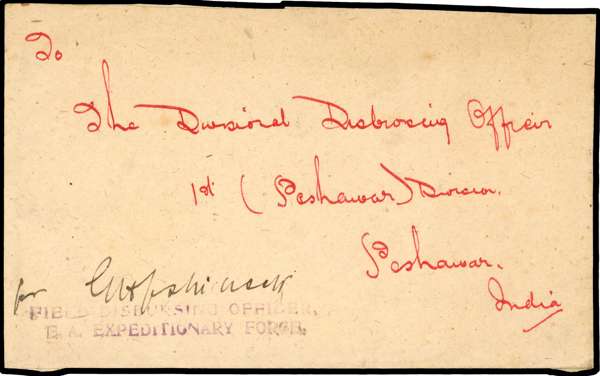 To
The Divisional Disbursing Officer
1st (Peshawar) Division.
Peshawar.
India
for
FIELD DISBURSING OFFICER,
E. A. EXPEDITIONARY FORCE.